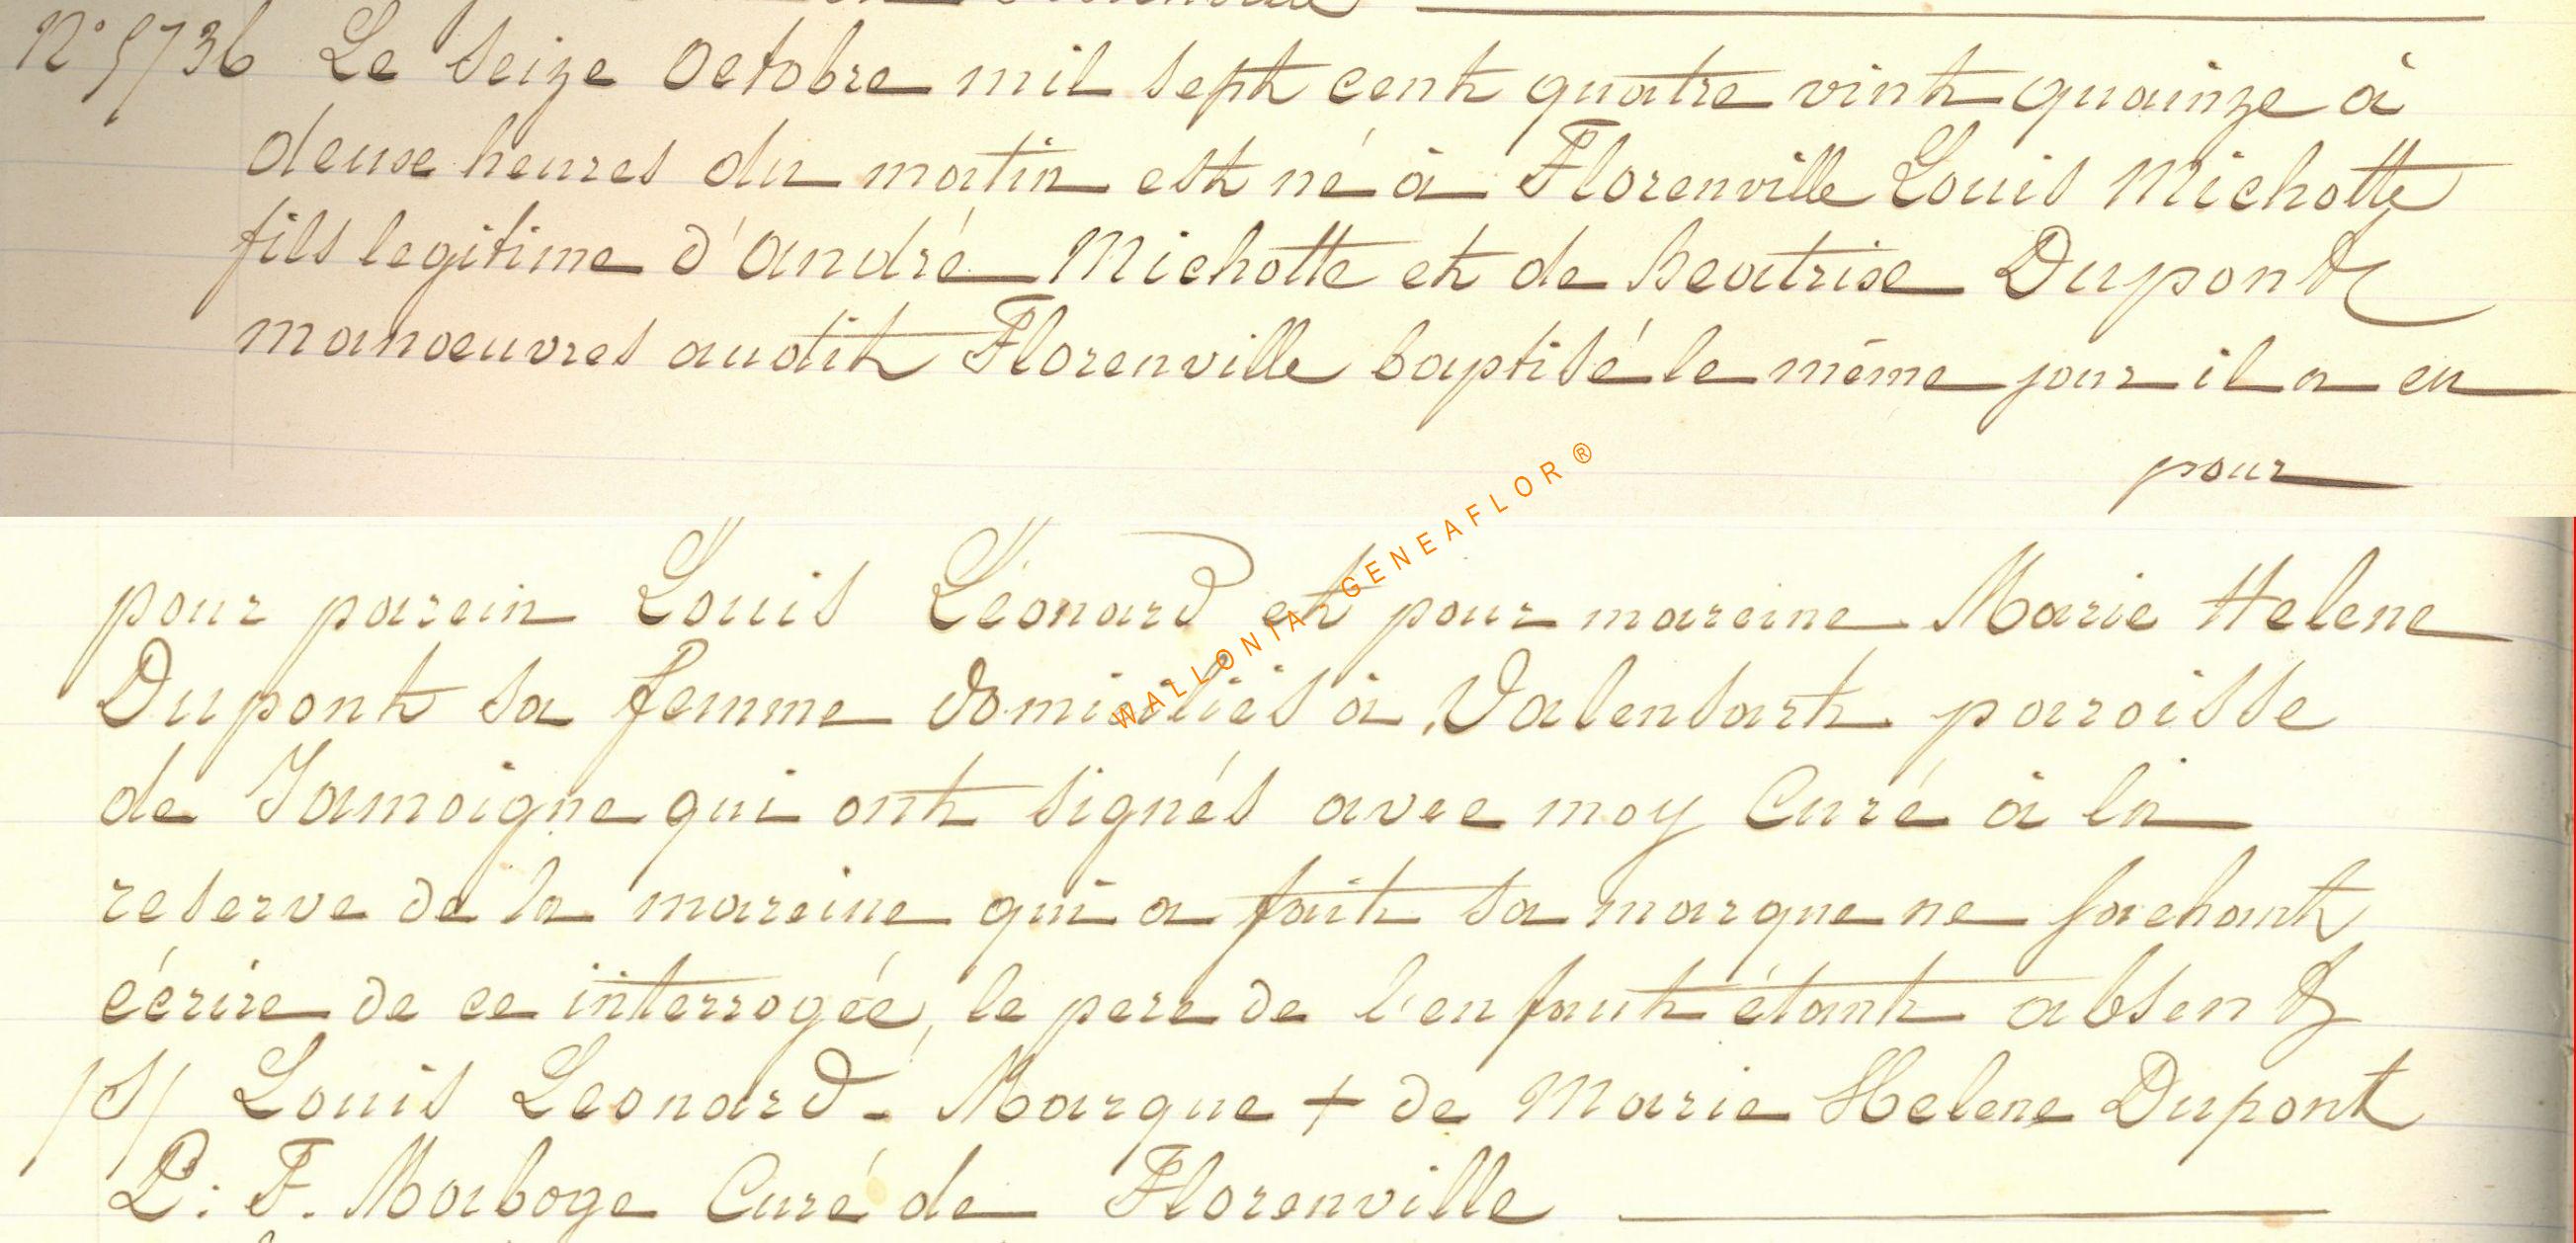 N° 5736 Le seize Octobre mil sept cent quatre vint quainze à
deuse heures du matin est né à Florenville Louis Michotte
fils legitime d'André Michotte et de Beatrise Dupont
manoeuvres audit Florenville baptisé le même jour il a eu
pour
pour parein Louis Léonard et pour mareine Marie Helene
Dupont sa femme domiciliés à Valensart paroisse
de Jamoigne qui ont signés avec moy Curé à la
reserve de la mareine qui a fait sa marque ne sachant
écrire de ce interrogée, le pere de l'enfant étant absent
/S/ Louis Leonard - Marque + de Marie Helene Dupont
P: F. Marboge Curé de Florenville
WALLONIA-GENEAFLOR ®